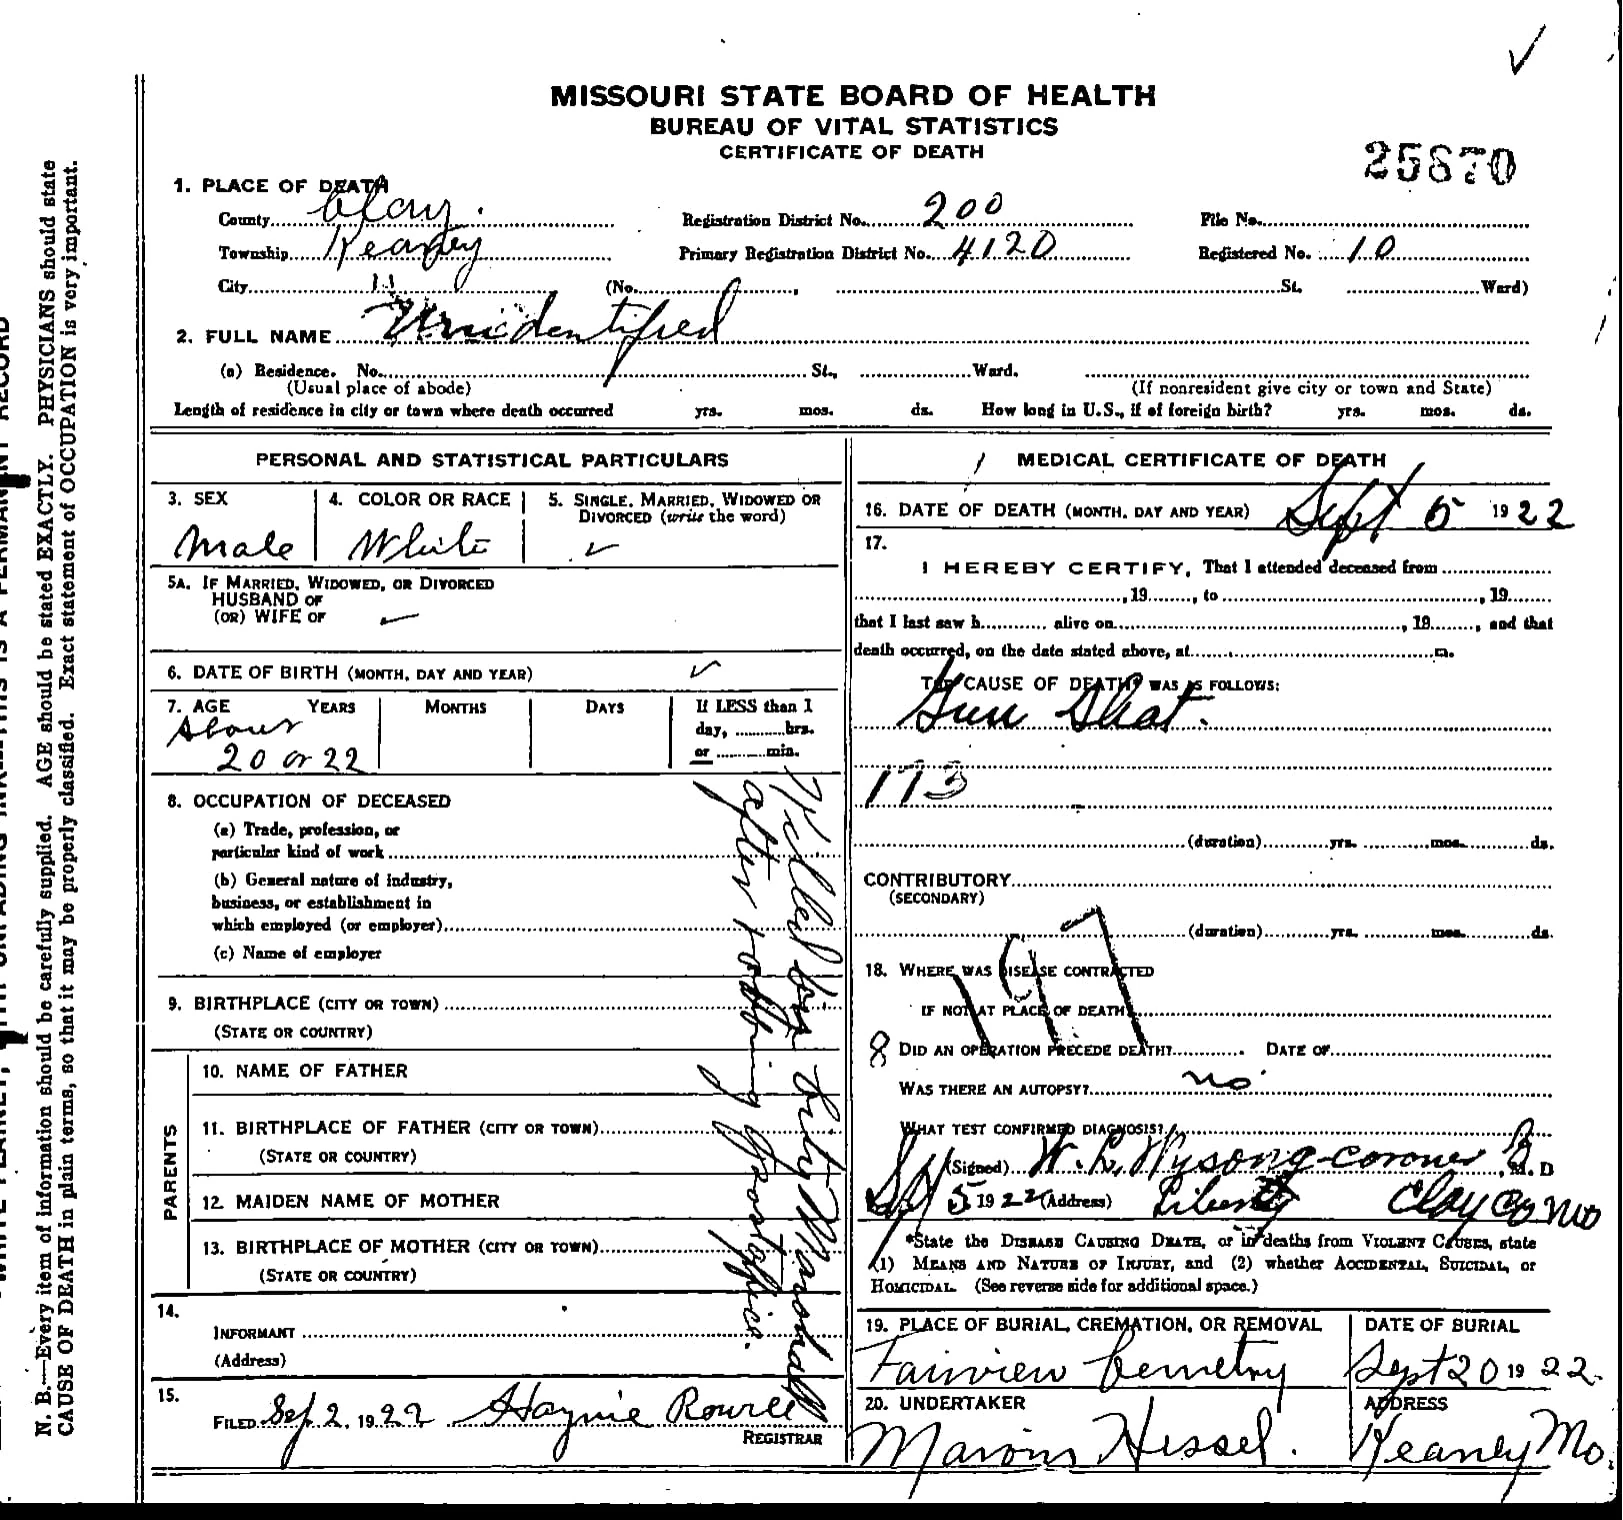 MISSOURI STATE BOARD OF HEALTH
BUREAU OF VITAL STATISTICS
CERTIFICATE OF DEATH
25670
1. PLACE OF DEATH
County Clay. Registration District No. 200 File No.
Township Kearney Primary Registration District No. 4120 Registered No. 10
City " (No. , St. Ward)
2. FULL NAME Unidentified
(a) Residence. No. St., Ward.
(Usual place of abode) (If nonresident give city or town and State)
Length of residence in city or town where death occurred yrs. mos. ds. How long in U.S., if of foreign birth? yrs. mos. ds.
PERSONAL AND STATISTICAL PARTICULARS
3. SEX 4. COLOR OR RACE 5. SINGLE, MARRIED, WIDOWED OR
DIVORCED (write the word)
Male White ✓
5A. IF MARRIED, WIDOWED, OR DIVORCED
HUSBAND OF
(OR) WIFE OF
6. DATE OF BIRTH (MONTH, DAY AND YEAR) ✓
7. AGE YEARS MONTHS DAYS If LESS than 1
About day, hrs.
20 or 22 or min.
8. OCCUPATION OF DECEASED
(a) Trade, profession, or
particular kind of work
(b) General nature of industry,
business, or establishment in
which employed (or employer)
(c) Name of employer
9. BIRTHPLACE (CITY OR TOWN)
(STATE OR COUNTRY)
PARENTS
10. NAME OF FATHER
11. BIRTHPLACE OF FATHER (CITY OR TOWN)
(STATE OR COUNTRY)
12. MAIDEN NAME OF MOTHER
13. BIRTHPLACE OF MOTHER (CITY OR TOWN)
(STATE OR COUNTRY)
14.
INFORMANT
(Address)
15.
FILED Sep 2, 1922 Haynie
REGISTRAR
Killed by City Marshall
after robbing Postoffice.
MEDICAL CERTIFICATE OF DEATH
16. DATE OF DEATH (MONTH, DAY AND YEAR) Sept 5 1922
17.
I HEREBY CERTIFY, That I attended deceased from
, 19 , to , 19
that I last saw h alive on , 19 , and that
death occurred, on the date stated above, at m.
THE CAUSE OF DEATH* WAS AS FOLLOWS:
Gun Shot.
173
(duration) yrs. mos. ds.
CONTRIBUTORY
(SECONDARY)
(duration) yrs. mos. ds.
197
18. WHERE WAS DISEASE CONTRACTED
IF NOT AT PLACE OF DEATH
8 DID AN OPERATION PRECEDE DEATH? DATE OF
WAS THERE AN AUTOPSY? no
WHAT TEST CONFIRMED DIAGNOSIS?
(Signed) Wysong-coroner , M. D
5 1922 (Address) Liberty Clay Co Mo
*State the DISEASE CAUSING DEATH, or in deaths from VIOLENT CAUSES, state
(1) MEANS AND NATURE OF INJURY, and (2) whether ACCIDENTAL, SUICIDAL, or
HOMICIDAL. (See reverse side for additional space.)
19. PLACE OF BURIAL, CREMATION, OR REMOVAL DATE OF BURIAL
Fairview Cemetry Sept 20 1922.
20. UNDERTAKER ADDRESS
Hessel. Kearney Mo.
N. B.—Every item of information should be carefully supplied. AGE should be stated EXACTLY. PHYSICIANS should state
CAUSE OF DEATH in plain terms, so that it may be properly classified. Exact statement of OCCUPATION is very important.